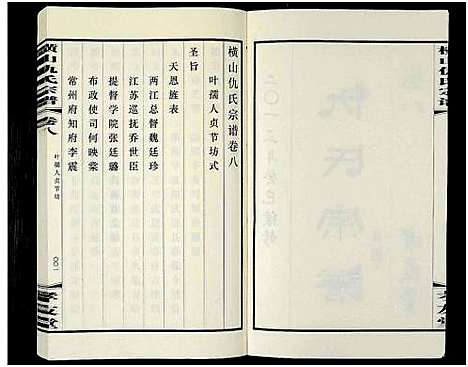 横山仇氏宗谱
二〇一三年癸巳续修
仇氏宗谱
孝友堂
横山仇氏宗谱卷八
叶孺人贞节坊式
圣旨
天恩旌表
两江总督魏廷珍
江苏巡抚乔世臣
提督学院张廷璐
布政使司何映棠
常州府知府李震
横山仇氏宗谱
卷八
叶孺人贞节坊
〇〇一
孝友堂